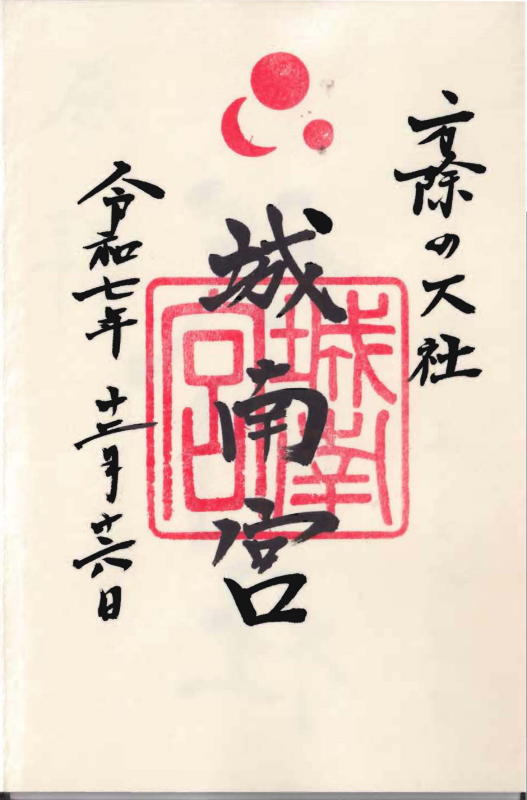 方除の大社
城南宮
城南宮
令和七年十二月廿六日